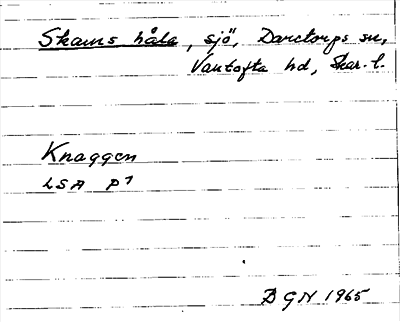 Skams håla, sjö, Daretorps sn,
Vartofta hd, Skar. l.
Knaggen
LSA P7
BGN 1965